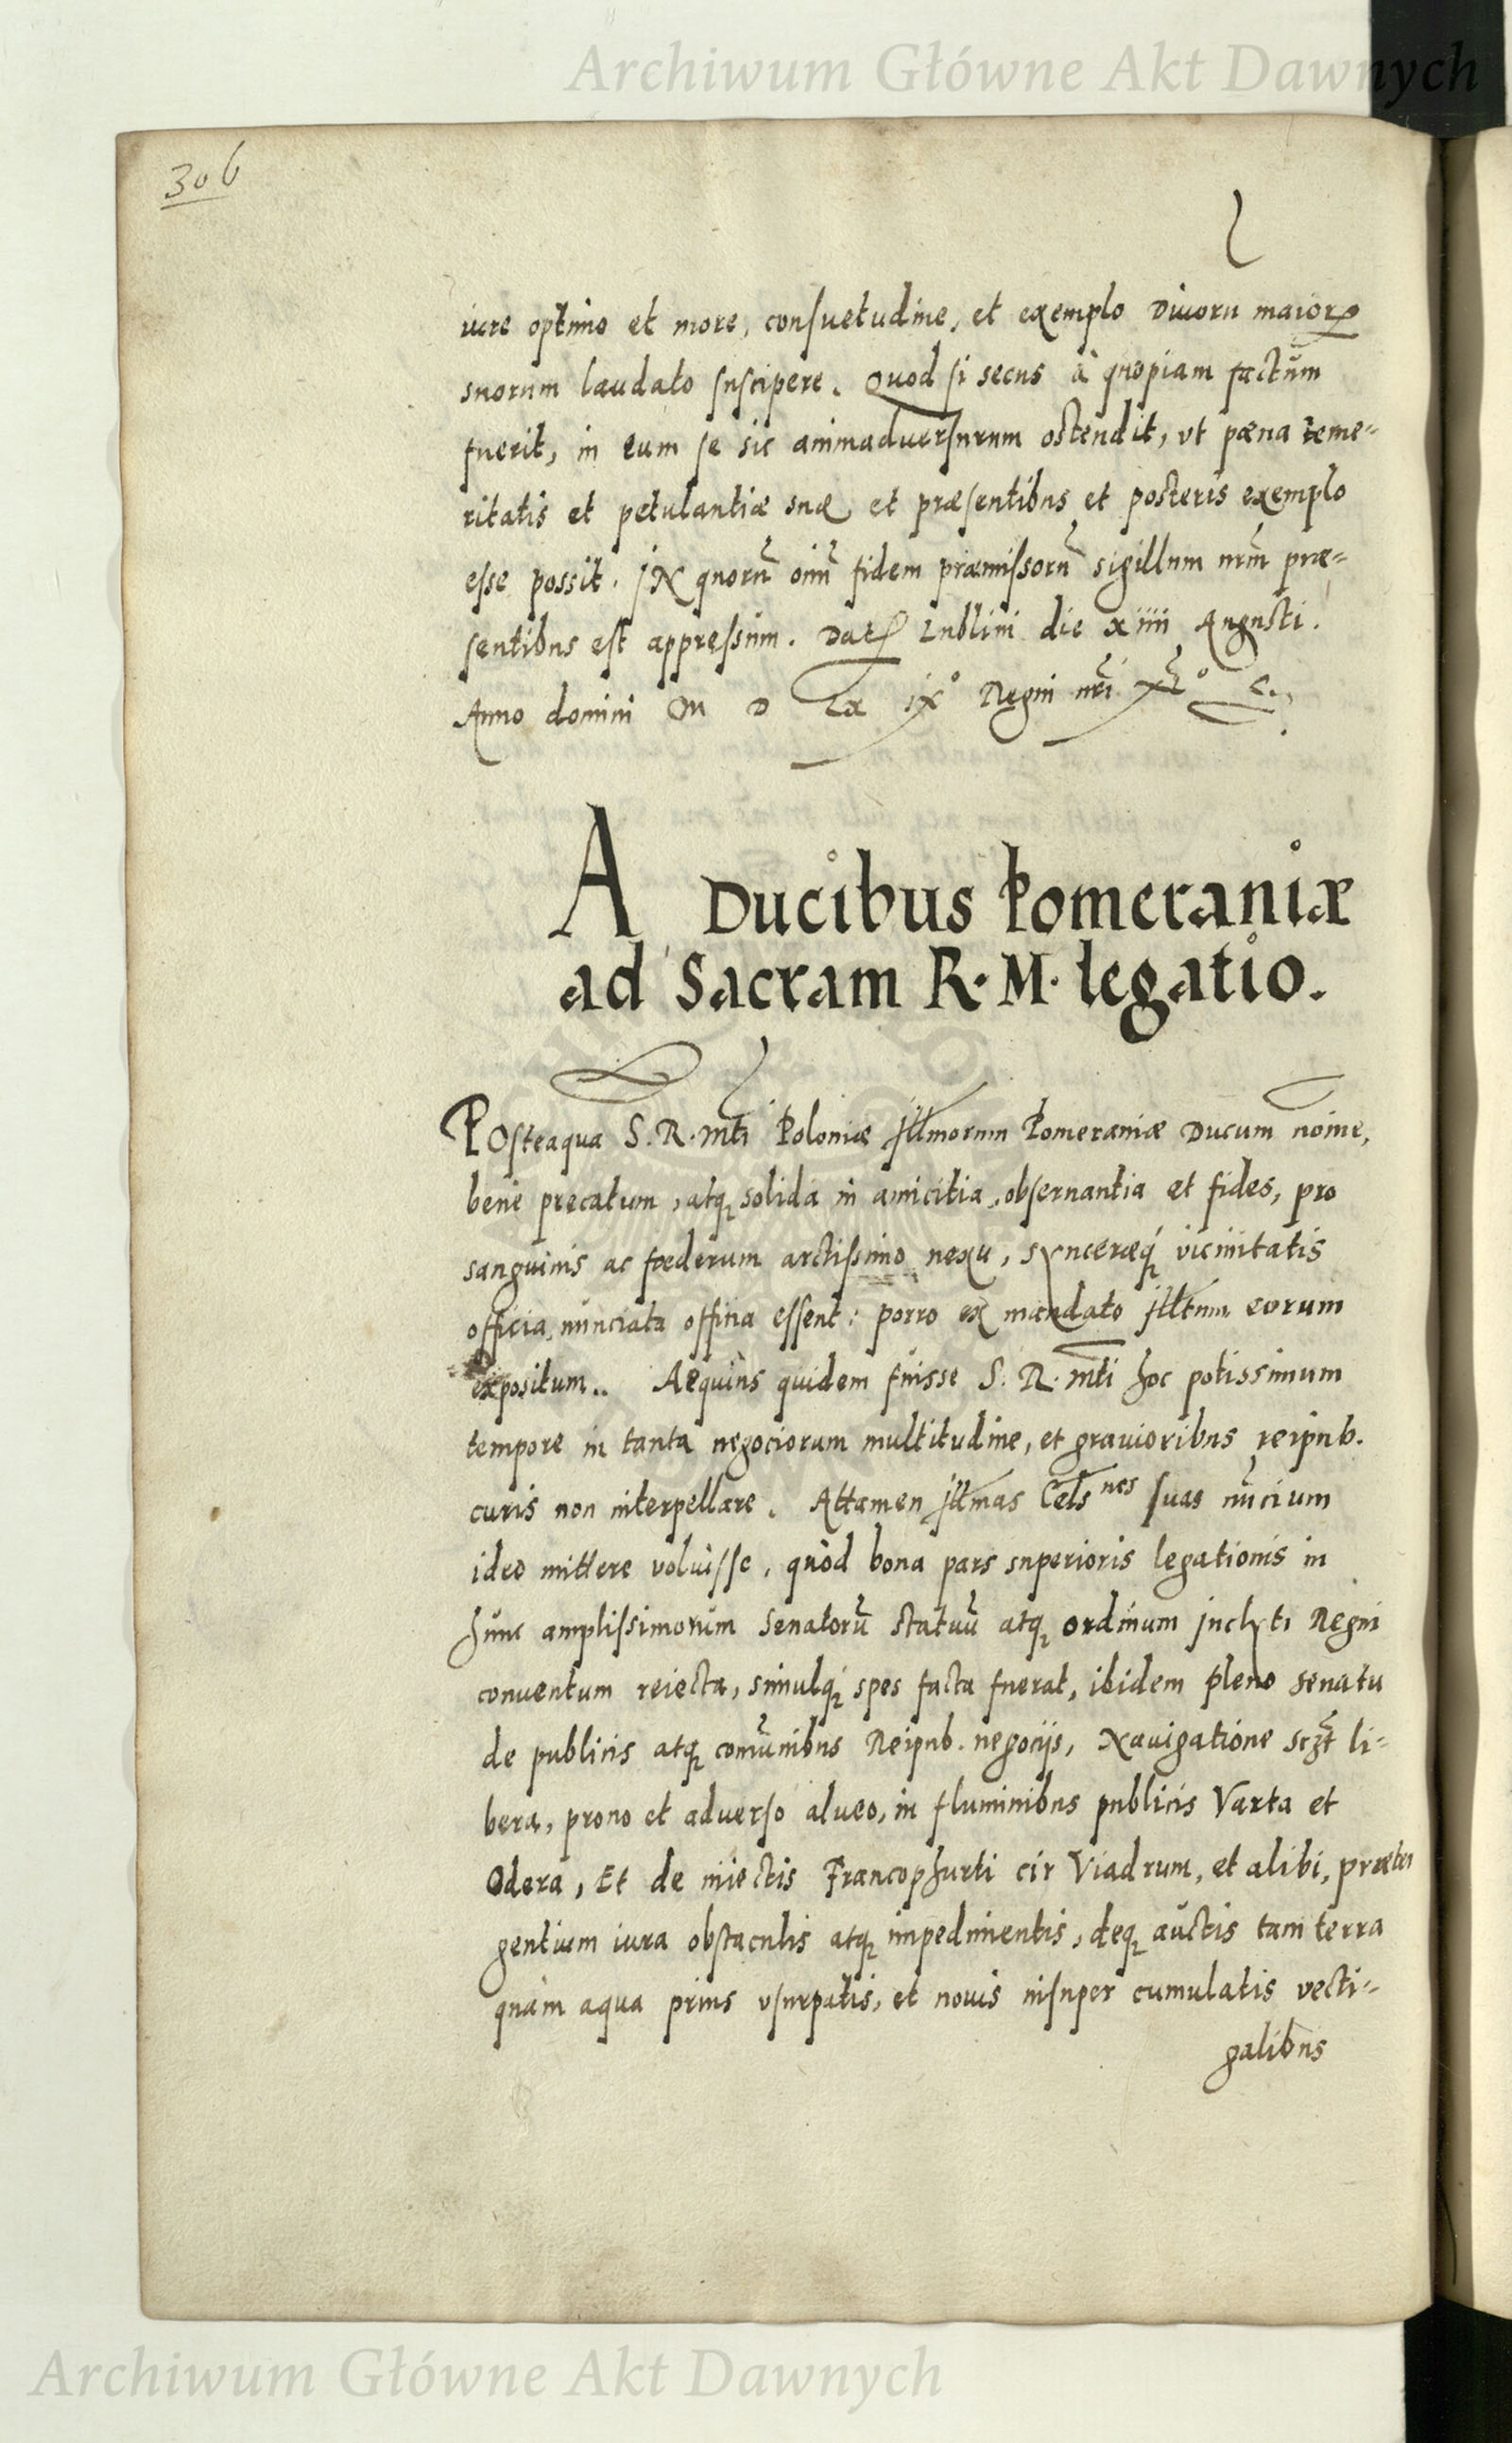 Archiwum Główne Akt Dawnych
306
iure optimo et more, consuetudine, et exemplo Diuorū maiorꝝ
suorum laudato suscipere. Quod si secus à quopiam factum
fuerit, in eum se sic animaduersurum ostendit, vt pœna teme-
ritatis et petulantiæ suæ et præsentibus et posteris exemplo
esse possit. IN quorū oīm fidem præmissorū sigillum nrm̄ præ-
sentibus est appressum. Dat Lublini die xiiii Augusti.
Anno domini M D Lx ix° Regni nrī xL°
A Ducibus Pomeraniæ
ad Sacram R. M. legatio.
POsteaqua S. R. Mti Poloniæ Illmorum Pomeraniæ Ducum noīe,
bene precatum, atq; solida in amicitia, obseruantia et fides, pro
sanguinis ac fœderum arctissimo nexu, synceræq; vicinitatis
officia, nunciata essent: porro ex mandato Illm̄m eorum
expositum.. Aequius quidem fuisse S. R. Mti hoc potissimum
tempore in tanta negociorum multitudine, et grauioribus reipub.
curis non interpellare. Attamen Illmas Cels nes suas nūcium
ideo mittere voluisse, quòd bona pars superioris legationis in
hunc amplissimorum Senatorū statuū atq; ordinum inclyti Regni
conuentum reiecta, simulq; spes facta fuerat, ibidem pleno senatu
de publicis atq; comūnibus Reipub. negocijs, Nauigatione sczt li-
bera, prono et aduerso alueo, in fluminibus publicis Varta et
Odera, Et de iniectis Francophurti cir Viadrum, et alibi, præter
gentium iura obstaculis atq; impedimentis, deq; auctis tam terra
quàm aqua prius vsurpatis, et nouis insuper cumulatis vecti-
galibus
Archiwum Główne Akt Dawnych